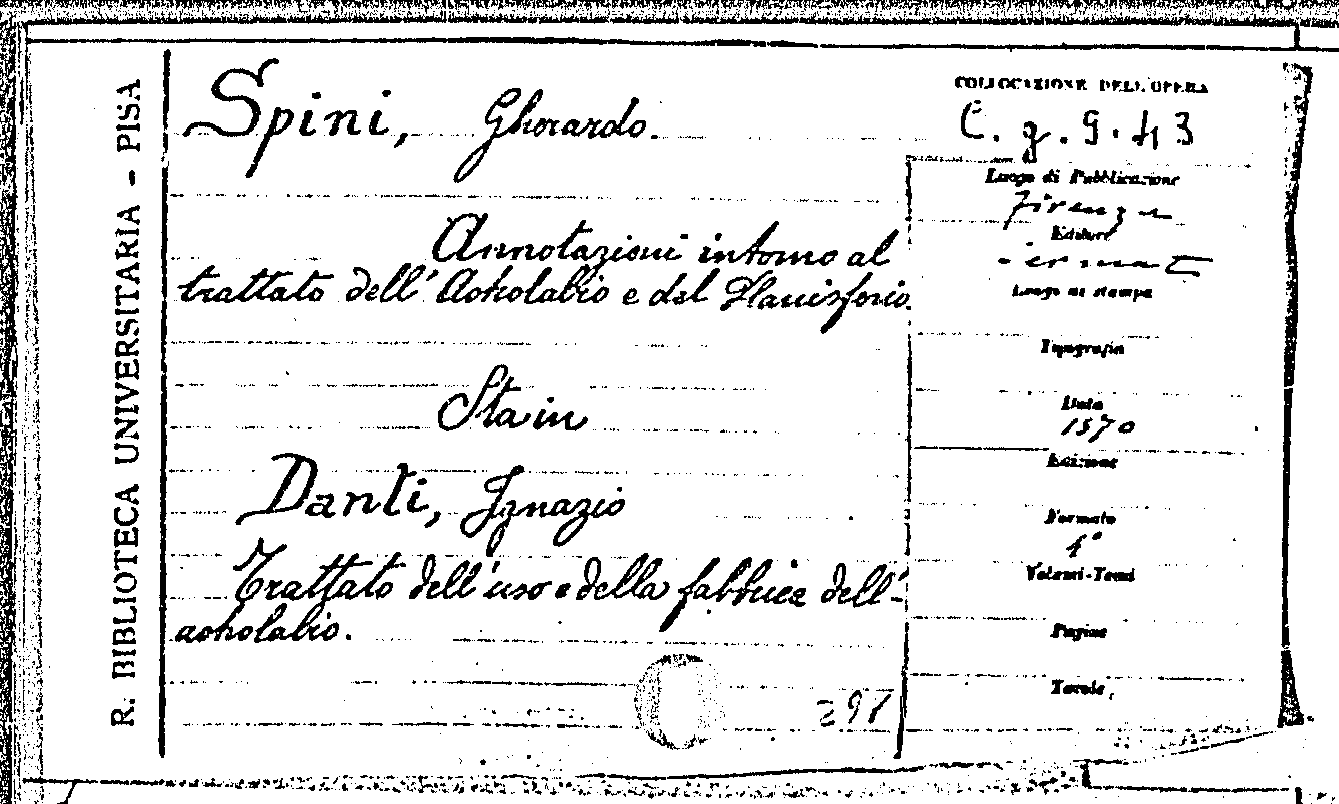 R. BIBLIOTECA UNIVERSITARIA - PISA
Spini, Gherardo.
Annotazioni intorno al
trattato dell'Astrolabio e del Planisferio.
Sta in
Danti, Ignazio
Trattato dell'uso e della fabbrica dell'-
astrolabio.
291
COLLOCAZIONE DELL'OPERA
C. g. 9. 43
Luogo di Pubblicazione
Firenze
Editore
Luogo di stampa
Tipografia
Data
1570
Edizione
Formato
4°
Volumi-Tomi
Pagine
Tavole